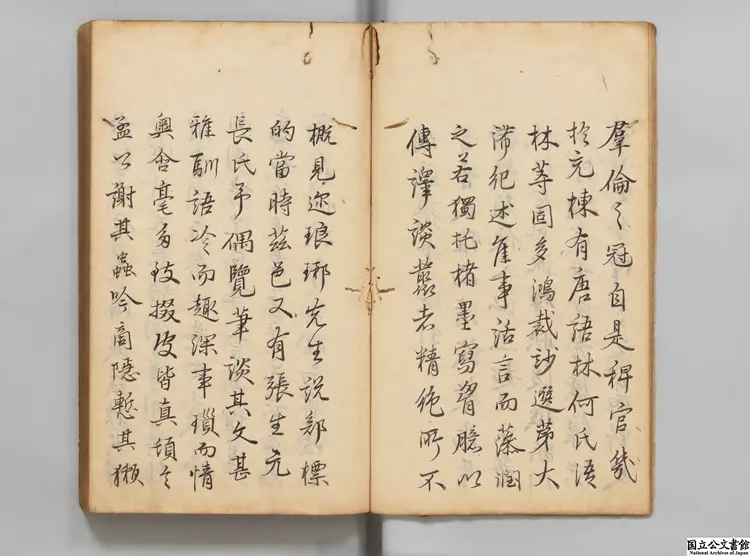 羣倫之冠自是稗官幾
於充棟有唐語林何氏語
林等固多鴻裁鈔選第大
沛紀述舊事活言而藻潤
之若獨托楮墨寫胷臆以
傳譯談叢者精絶所不
概見迩琅琊先生說部標
的當時茲邑又有張生元
長氏予偶覽筆談其文甚
雅馴語冷而趣深事瑣而情
奧含毫多致掇皮皆真頡之
孟公謝其蟲吟商隱慙其獺
国立公文書館
National Archives of Japan